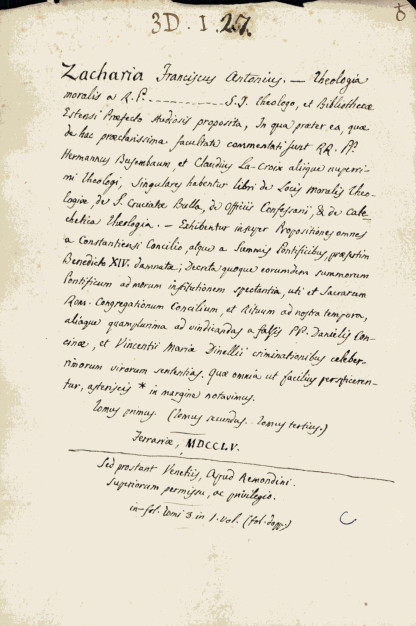 3D. I. 27.
Zacharia Franciscus Antonius. — Theologia
moralis a R. P. ------------ S. J. theologo, et Bibliothecæ
Estensi Præfecto studiosis proposita, In qua præter ea, quæ
de hac præclarissima facultate commentati sunt RR. PP.
Hermannus Busembaum, et Claudius La-Croix aliique nuperri-
mi theologi, singulares habentur libri de Locis moralis Theo-
logiæ, de S. Cruciatæ Bulla, de Officiis Confessarii, & de Cate-
chetica theologia. — Exhibentur insuper Propositiones omnes
a Constantiensi Concilio, atque a Summis Pontificibus, præsertim
Benedicto XIV. damnatæ; Decreta quoque eorumdem summorum
Pontificum ad morum institutionem spectantia, uti et Sacrarum
Rom. Congregationum Concilium, et Rituum ad nostra tempora,
aliaque quamplurima ad vindicandas a falsis PP. Danielis Con-
cinæ, et Vincentii Mariæ Dinellii criminationibus celeber-
rimorum virorum sententias. Quæ omnia ut facilius perspiceren-
tur, asteriscis * in margine notavimus.
Tomus primus. (Tomus secundus. Tomus tertius.)
Ferrariæ, MDCCLV.
Sed prostant Venetiis, Apud Remondini.
Superiorum permissu, ac privilegio.
in-fol. tomi 3 in 1. vol. (fol. dopp.)